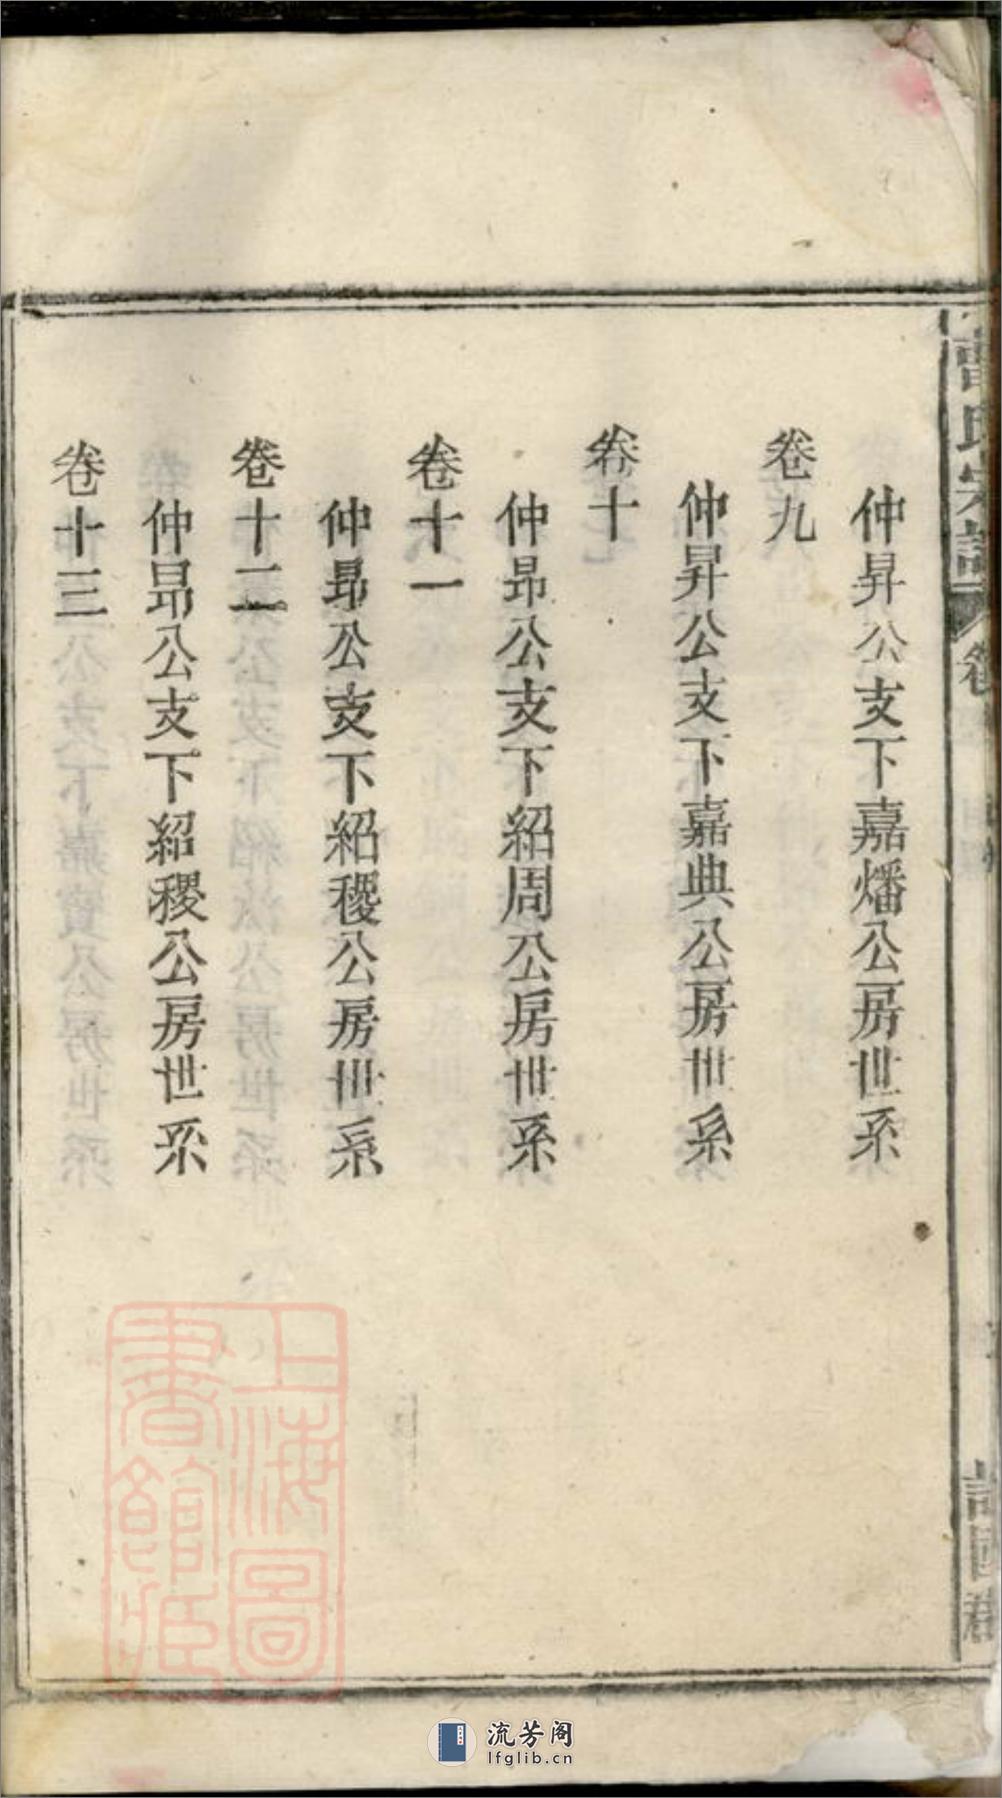 仲昇公支下嘉燔公房世系
卷九
仲昇公支下嘉典公房世系
卷十
仲昻公支下紹周公房世系
卷十一
仲昻公支下紹稷公房世系
卷十二
仲昻公支下紹稷公房世系
卷十三
上海圖
書館藏
流芳阁
lfglib.cn